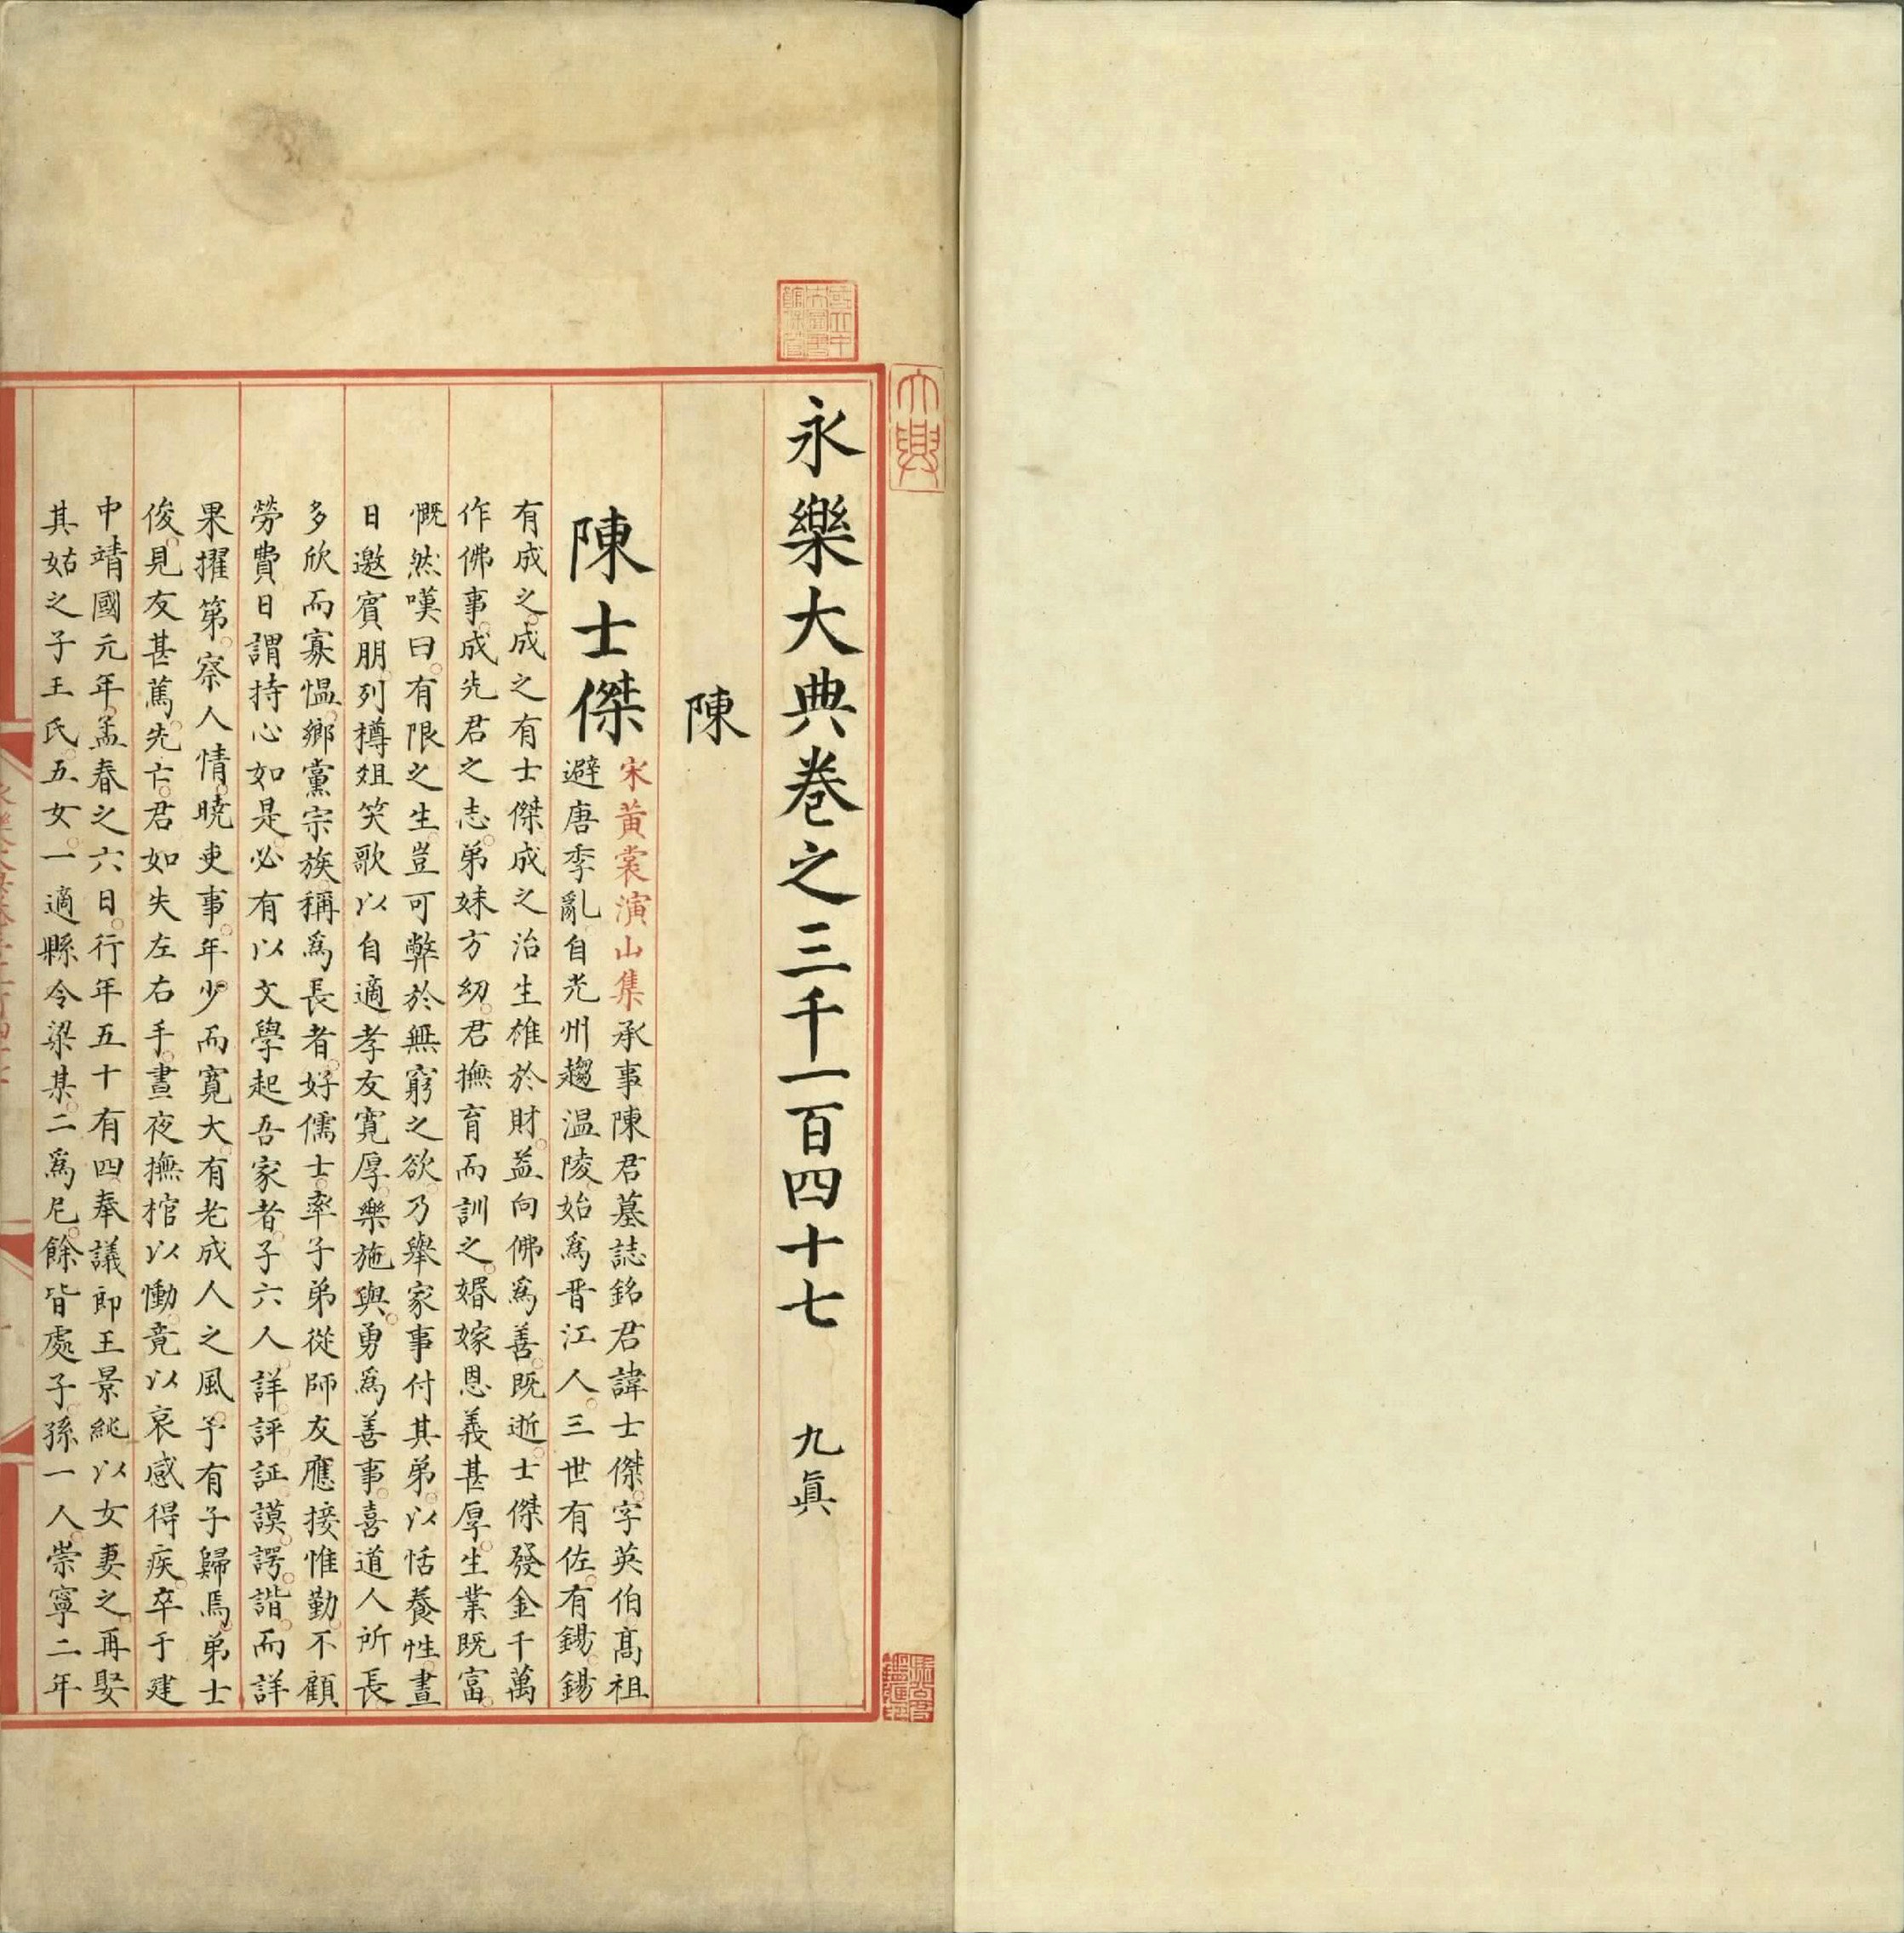 永樂大典卷之三千一百四十七 九眞
陳
陳士傑
宋黃裳演山集承事陳君墓誌銘君諱士傑字英伯髙祖
避唐季亂自光州趨温陵始爲晋江人三世有佐有錫錫
有成之成之有士傑成之治生雄於財益向佛爲善既逝士傑發金千萬
作佛事成先君之志弟妹方幼君撫育而訓之婚嫁恩義甚厚生業既富
慨然嘆曰有限之生豈可弊於無窮之欲乃舉家事付其弟以恬養性晝
日邀賓朋列樽俎笑歌以自適孝友寛厚樂施與勇爲善事喜道人所長
多欣而寡愠鄉黨宗族稱爲長者好儒士率子弟從師友應接惟勤不顧
勞費日謂持心如是必有以文學起吾家者子六人詳評証謨諤諧而詳
果擢第察人情曉吏事年少而寛大有老成人之風予有子歸焉弟士
俊見友甚篤先亡君如失左右手晝夜撫棺以慟竟以哀感得疾卒于建
中靖國元年孟春之六日行年五十有四奉議郎王景純以女妻之再娶
其姑之子王氏五女一適縣令梁某二爲尼餘皆處子孫一人崇寧二年
大興